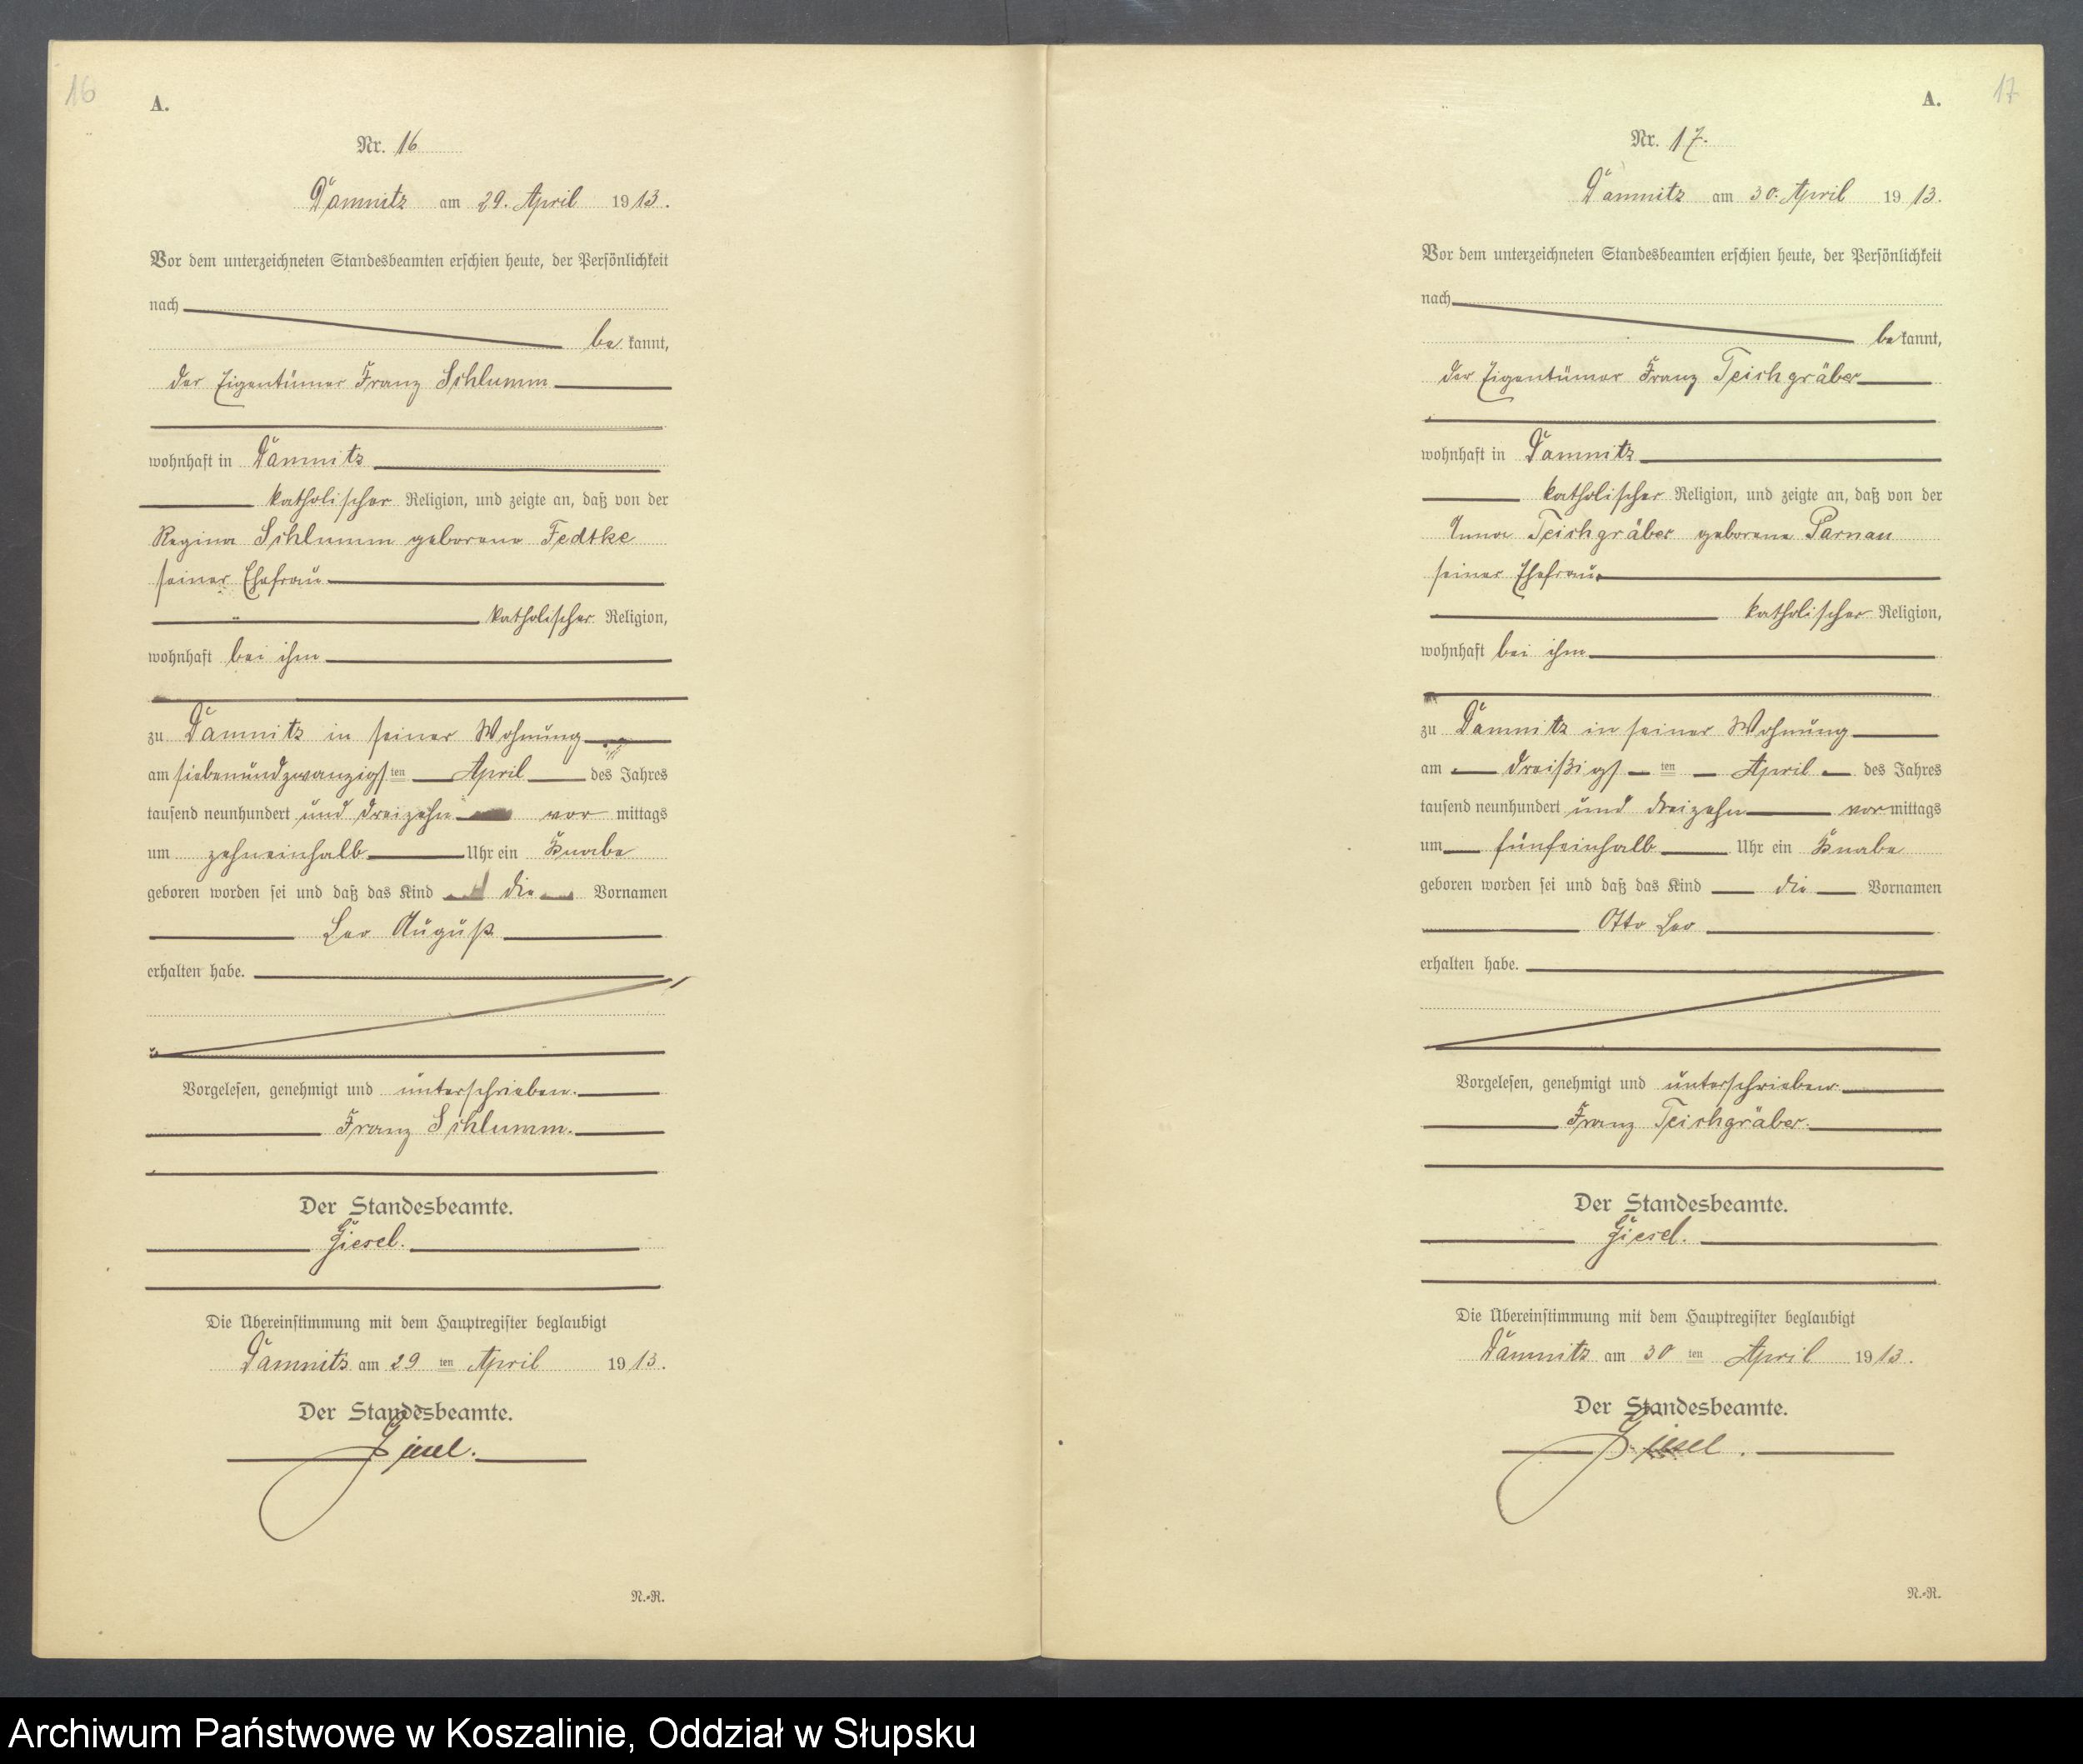 16
A.
Nr. 16
Damnitz am 29. April 1913.
Vor dem unterzeichneten Standesbeamten erschien heute, der Persönlichkeit
nach
be kannt,
der Eigentümer Franz Schlumm
wohnhaft in Damnitz
katholischer Religion, und zeigte an, daß von der
Regina Schlumm geborene Fedtke
seiner Ehefrau
katholischer Religion,
wohnhaft bei ihm
zu Damnitz in seiner Wohnung
am siebenundzwanzigsten April des Jahres
tausend neunhundert und dreizehn vor mittags
um zehneinhalb Uhr ein Knabe
geboren worden sei und daß das Kind die Vornamen
Leo August
erhalten habe.
Vorgelesen, genehmigt und unterschrieben.
Franz Schlumm.
Der Standesbeamte.
Giesel.
Die Übereinstimmung mit dem Hauptregister beglaubigt
Damnitz am 29 ten April 1913.
Der Standesbeamte.
Giesel.
N.-R.
17
A.
Nr. 17.
Damnitz am 30. April 1913.
Vor dem unterzeichneten Standesbeamten erschien heute, der Persönlichkeit
nach
be kannt,
der Eigentümer Franz Teichgräber
wohnhaft in Damnitz
katholischer Religion, und zeigte an, daß von der
Anna Teichgräber geborene Parnau
seiner Ehefrau
katholischer Religion,
wohnhaft bei ihm
zu Damnitz in seiner Wohnung
am dreißigsten April des Jahres
tausend neunhundert und dreizehn vor mittags
um fünfeinhalb Uhr ein Knabe
geboren worden sei und daß das Kind die Vornamen
Otto Leo
erhalten habe.
Vorgelesen, genehmigt und unterschrieben.
Franz Teichgräber.
Der Standesbeamte.
Giesel.
Die Übereinstimmung mit dem Hauptregister beglaubigt
Damnitz am 30 ten April 1913.
Der Standesbeamte.
Giesel.
N.-R.
Archiwum Państwowe w Koszalinie, Oddział w Słupsku